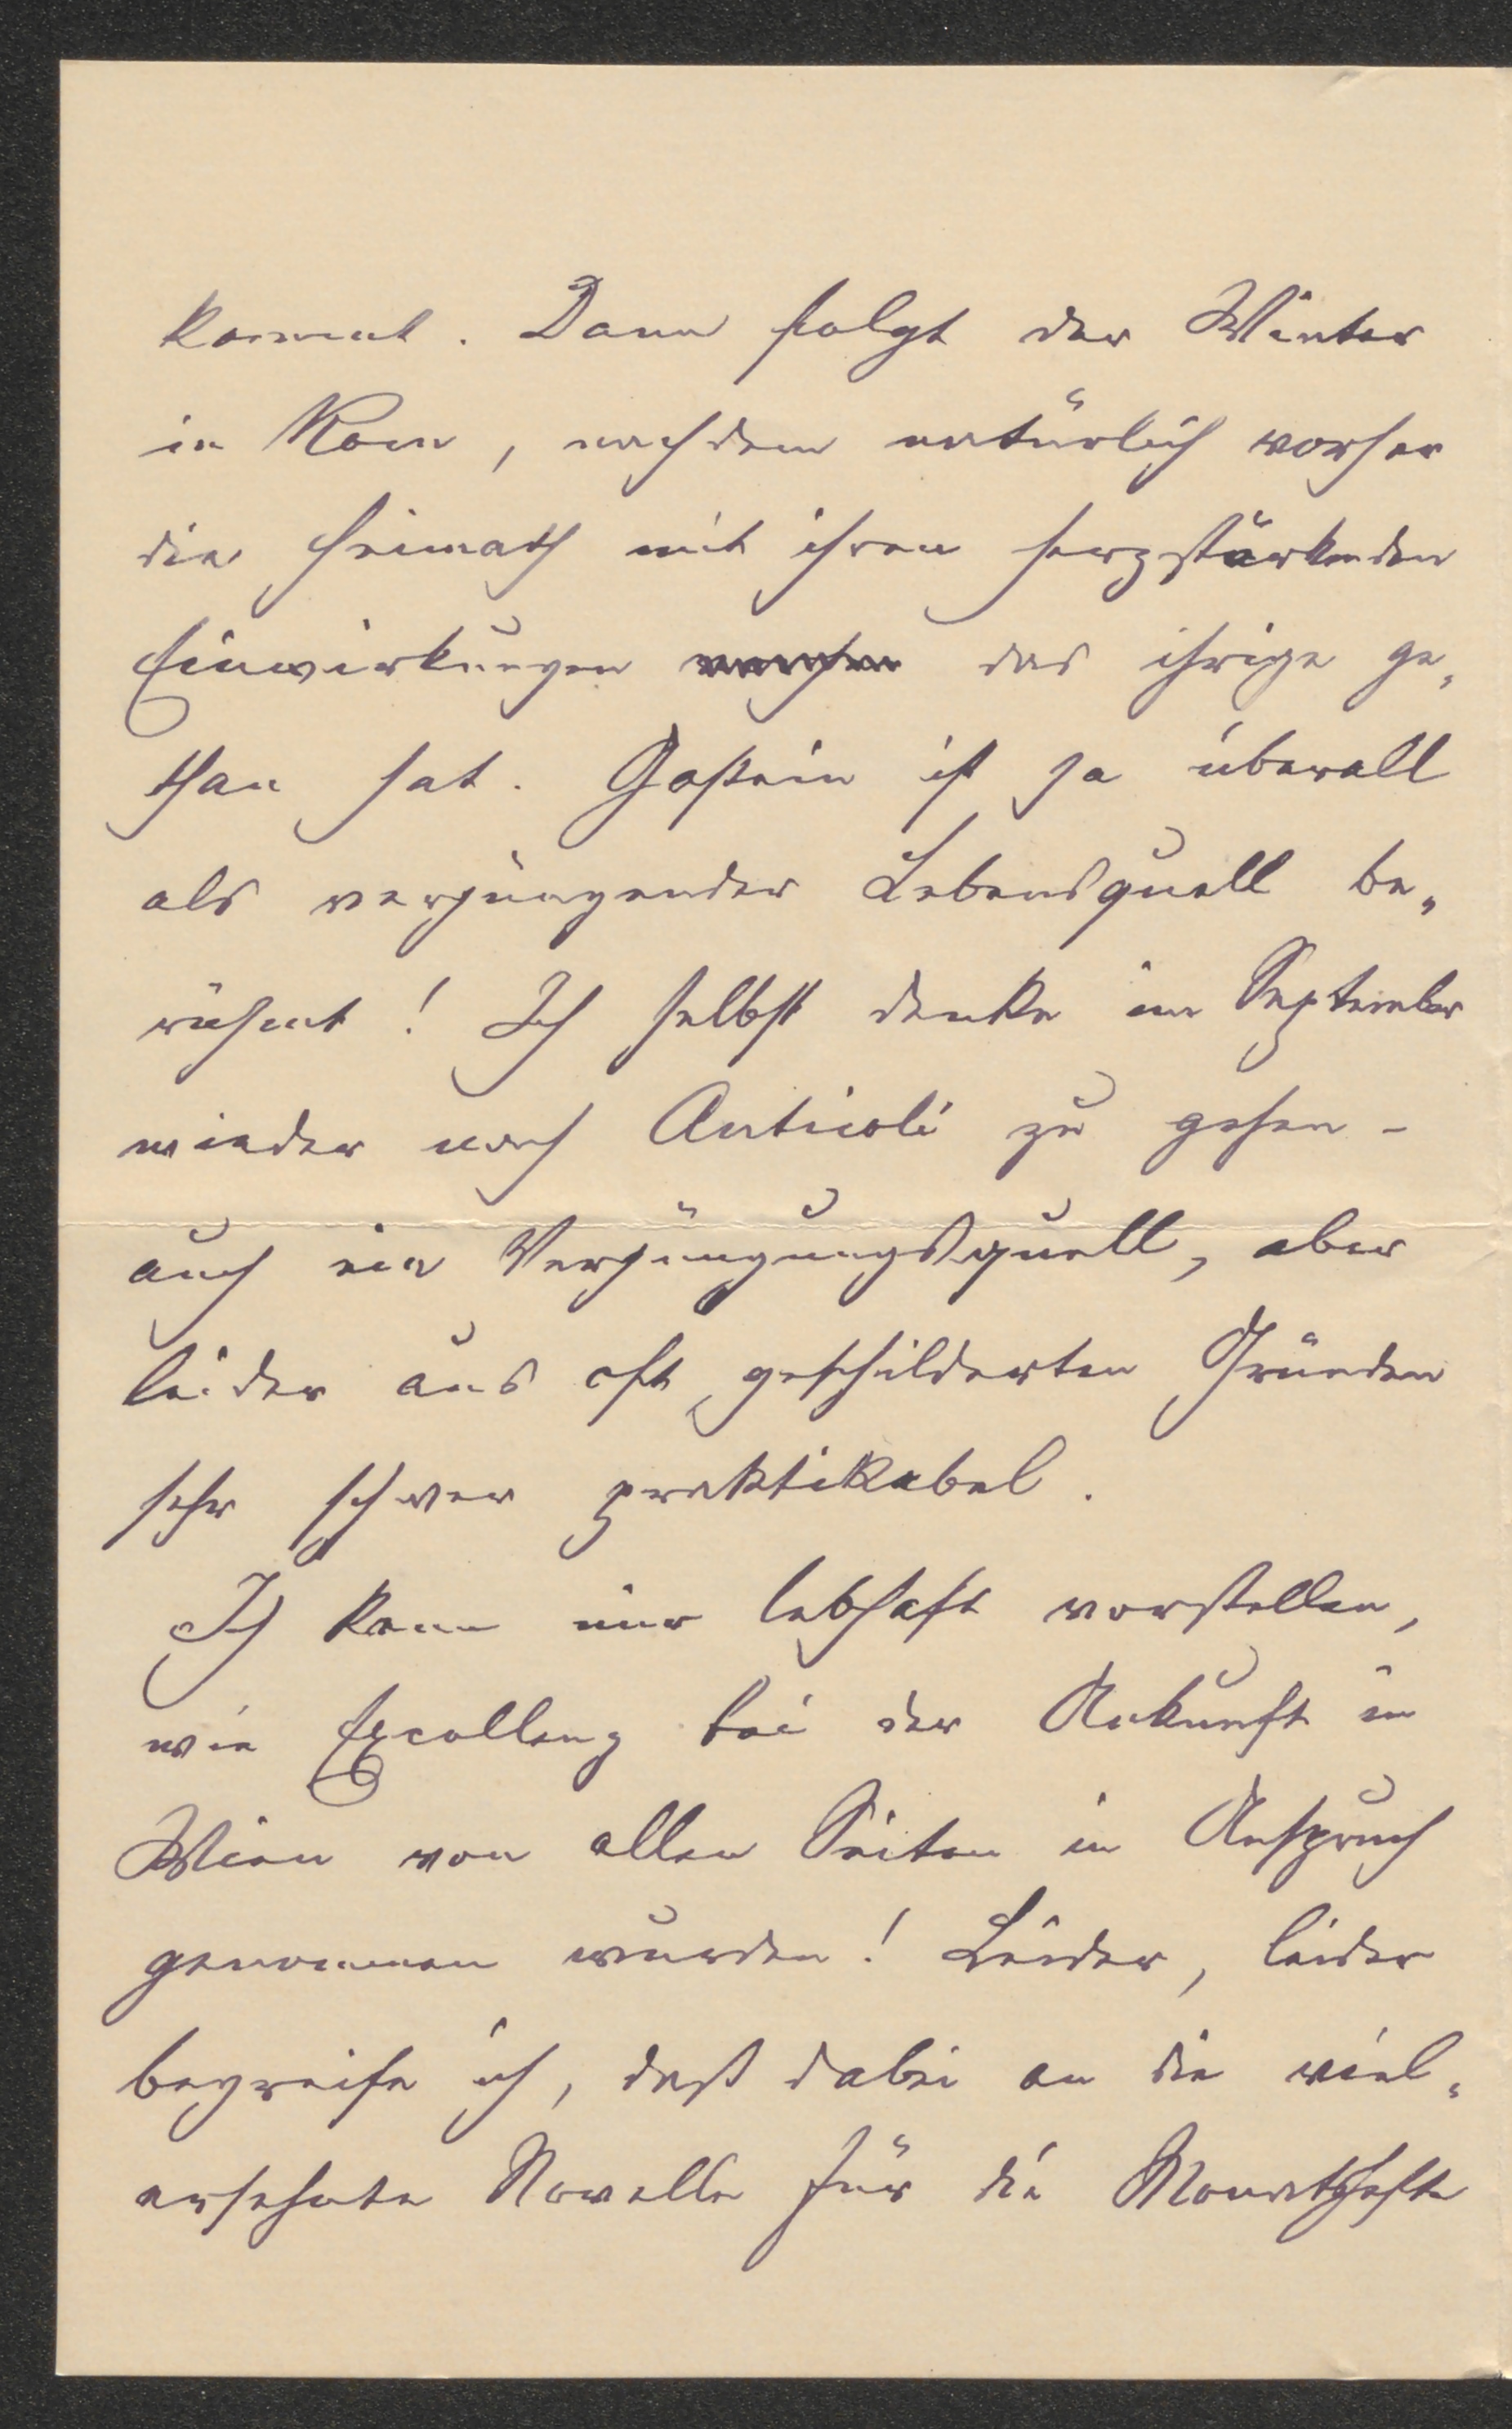 kommt. Dann folgt der Winter
in Rom, nachdem natürlich vorher
die Heimath mit ihren herzstärkenden
Einwirkungen das ihrige ge-
than hat. Gastein ist ja überall
als verjüngender Lebensquell be-
rühmt! Ich selbst denke im September
wieder nach Anticoli zu gehen -
auch ein Verjüngungsquell, aber
leider aus oft geschilderten Gründen
sehr schwer praktikabel.
Ich kann mir lebhaft vorstellen,
wie Excellenz bei der Ankunft in
Wien von allen Seiten in Anspruch
genommen wurden! Leider, leider
begreife ich, daß dabei an die viel-
ersehnte Novelle für die Monatshefte